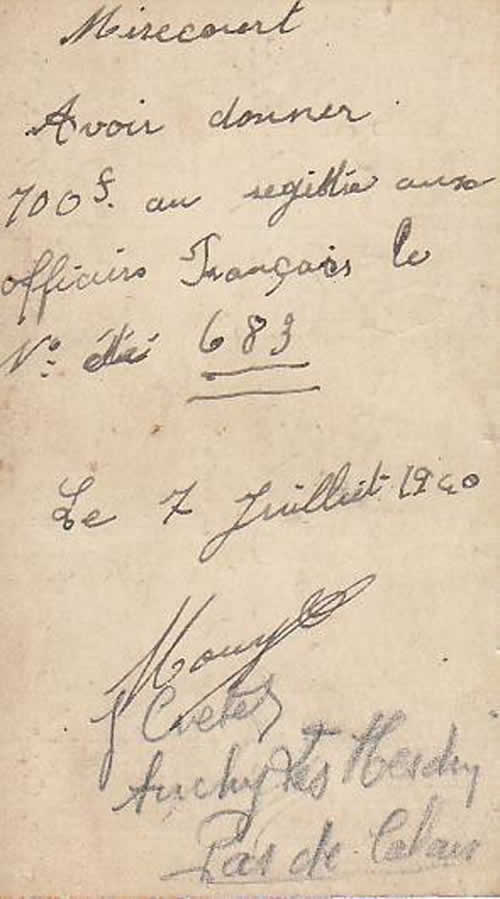 Mirecourt
Avoir donner
700f. au registre aux
officiers Français le
N° été 683
Le 7 Juilliet 1940
Auchy les Hesdin
Pas de Calais